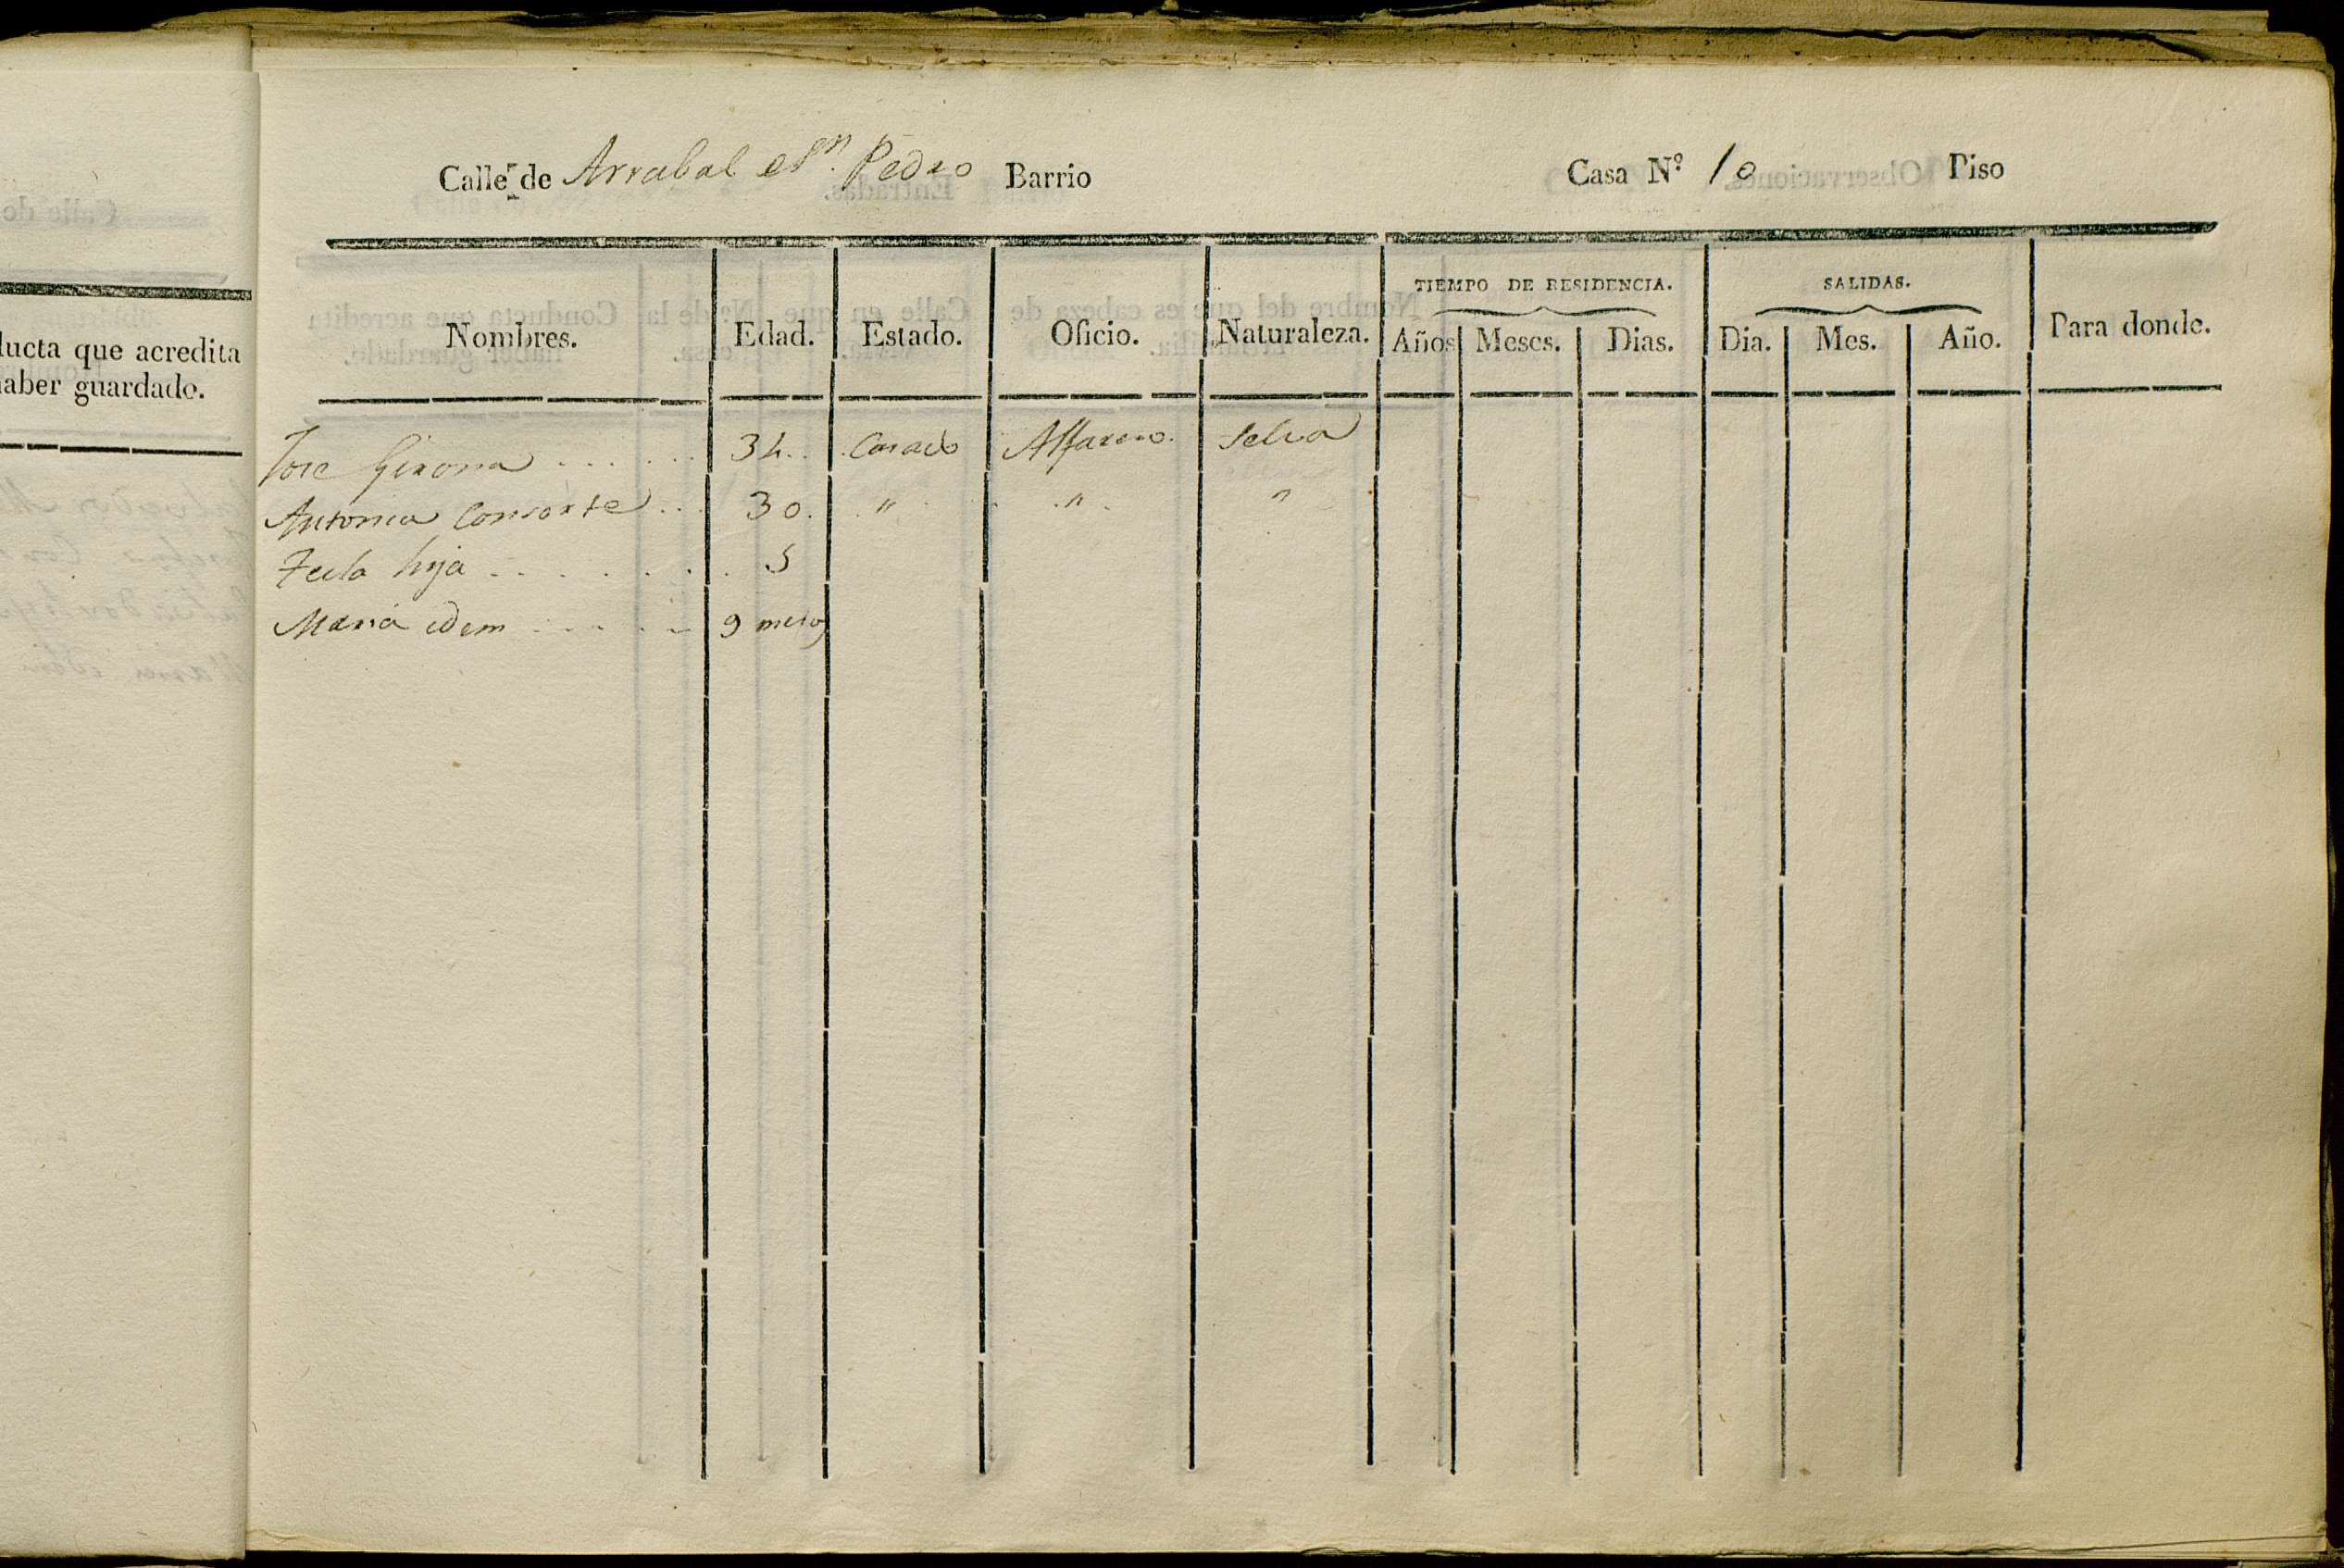 ducta que acredita
haber guardado.
Calle de Arrabal Sn. Pedro Barrio Casa N.º 10 Piso
Nombres. Edad. Estado. Oficio. Naturaleza. TIEMPO DE RESIDENCIA. Años Meses. Dias. SALIDAS. Dia. Mes. Año. Para donde.
Jose Girona ...... 34.. Casado Alfarero. Selva
Antonia Consorte ... 30. " " "
Tecla hija ........ 5
Maria idem ..... 9 meses